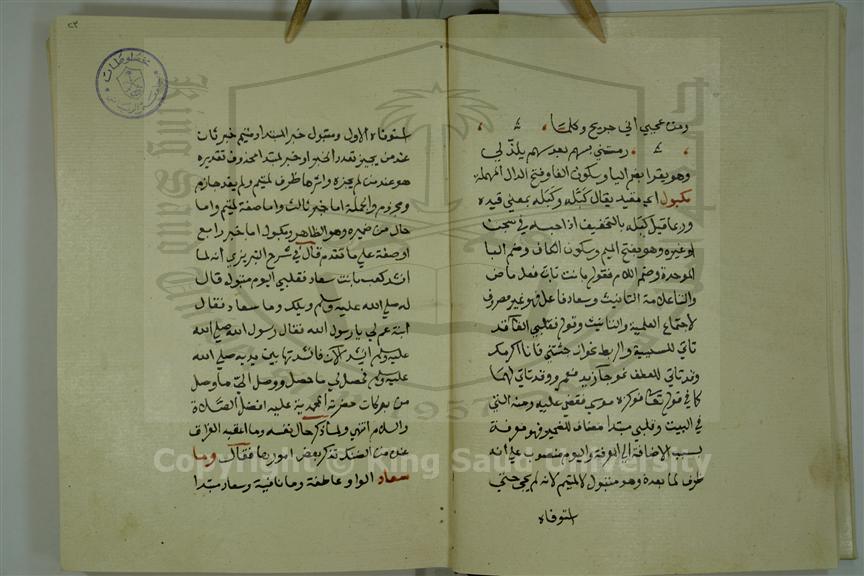 ومن عجبي اني جريح وكلما
رمتني بسهم بعد سهم يلذ لي
وهو يقرا بضم اليا وسكون الفا وفتح الدال المهملة
مكبول اي مقيد يقال كبله وكبله بمعني قيده
وربما قيل كبله بالتخفيف اذا حبسه في سجن
او غيره وهو بفتح الميم وسكون الكاف وضم البا
الموحدة وضم اللام فقوله بانت بات فعل ماض
والتا علامة التانيث وسعاد فاعل فهو غير مصرف
لاجتماع العلمية والتانيث وقوله فقلبي الفا قد
تاتي للسببية والربط نحو ان جئتني فانا اكرمك
وقد تاتي للعطف نحو جا زيد فعمرو وقد تاتي لهما
كما في قوله تعالى فوكزه موسى فقضى عليه ومنه التي
في البيت وقلبي مبتدا مضاف للضمير فهو معرفة
بسبب الاضافة الى المعرفة واليوم منصوب على انه
ظرف لما بعده وهو متبول لا لمتيم لانه لم يجي حتى
استوفاه
استوفاه الاول ومتبول خبر المبتدا ومتيم خبر ثان
عند من يجيز تعدد الخبر او خبر لمبتدا محذوف تقديره
هو عند من لم يجزه واثرها ظرف لمتيم ولم يفد جازم
ومجزوم والجملة اما خبر ثالث واما صفة لمتيم واما
حال من ضميره وهو الظاهر ومكبول اما خبر رابع
او صفة على ما تقدم قال في شرح التبريزي انه لما
انشد كعب بانت سعاد فقلبي اليوم متبول قال
له صلى الله عليه وسلم ويلك وما سعاد فقال
ابنة عم لي يا رسول الله فقال رسول الله صلى الله
عليه وسلم انشد الآن فانشدتها بين يديه صلى الله
عليه وسلم فحصل لي ما حصل ووصل الى ما وصل
من بركات حضرته المحمدية عليه افضل الصلاة
والسلام انتهى ولما ذكر حال نفسه وما اعقبه الفراق
عنده من الضنك تذكر بعض امورها فقال وما
سعاد الواو عاطفة وما نافية وسعاد مبتدا
مخطوطات
Copyright © King Saud University
King Saud
1957